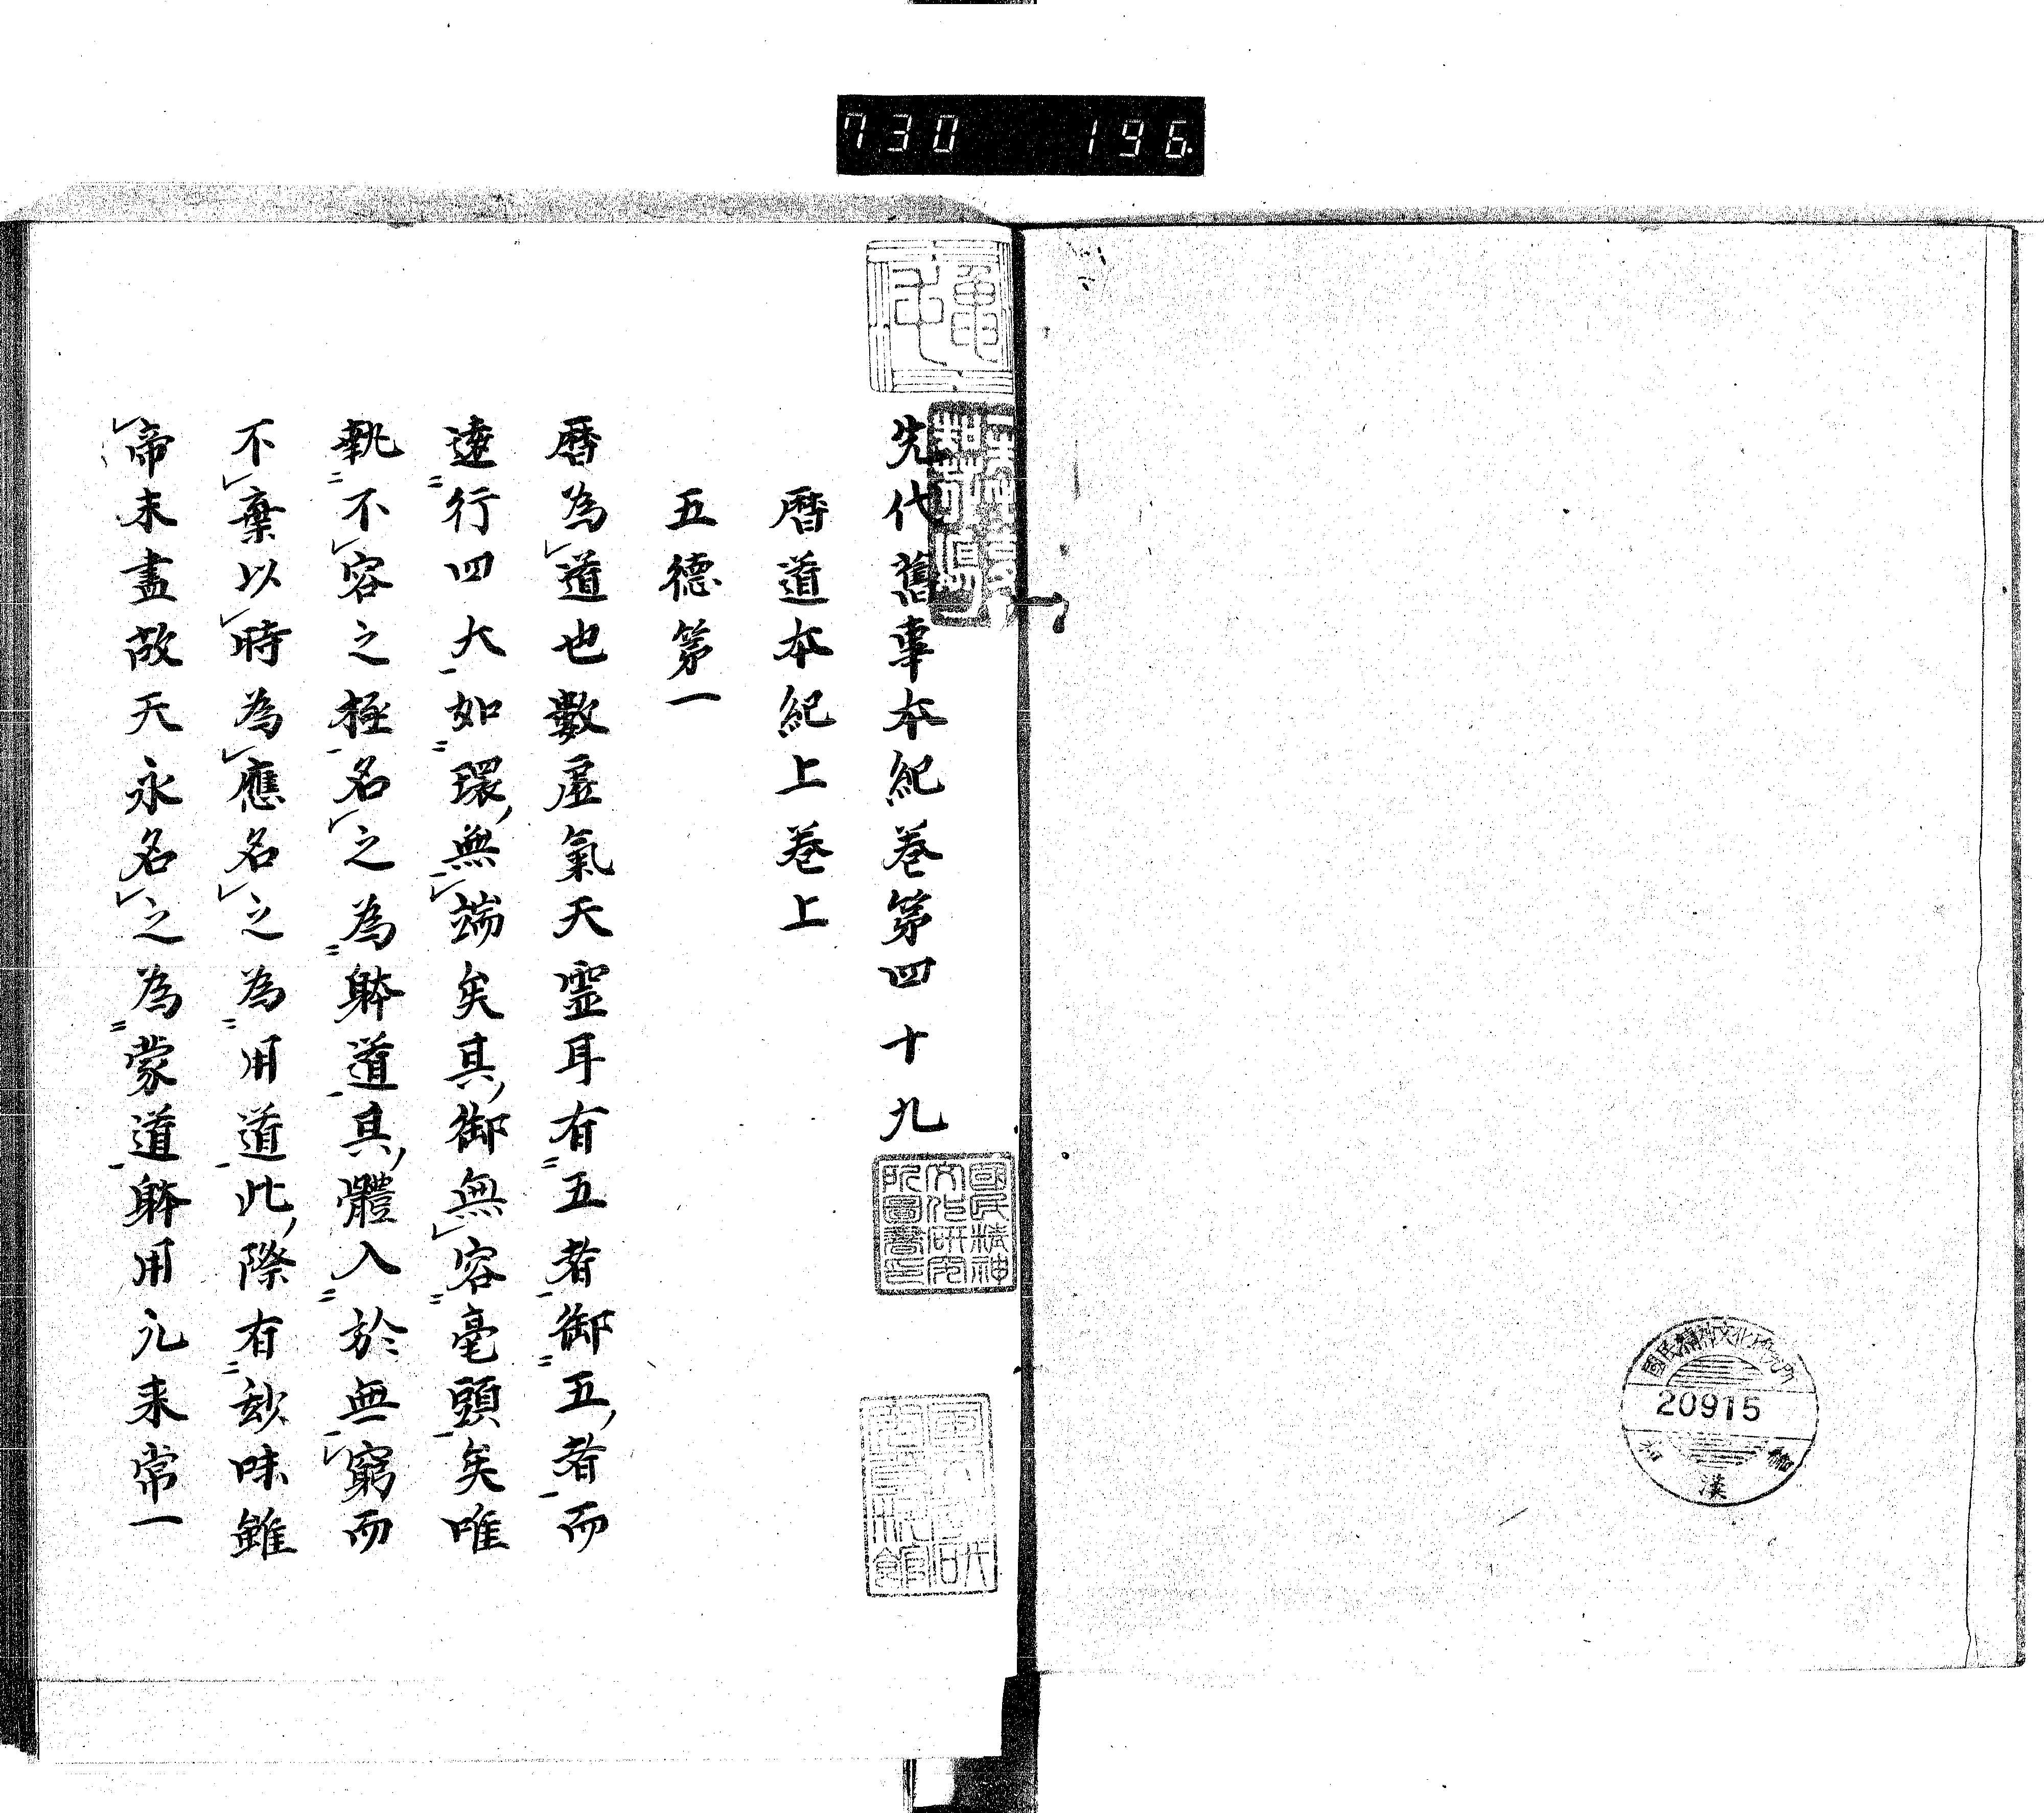 730 196
先代舊事本紀巻第四十九
暦道本紀上巻上
五德第一
暦為道也數虗氣天霊耳有五者御五者而
遶行四大如環無端矣其御無容毫頭矣唯
執不容之極名之為躰道其體入於無窮而
不棄以時為應名之為用道此際有玅味雖
啻未盡故天永名之為蒙道躰用元来常一
國民精神文化研究所圖書之印
國民精神文化研究所
20915
漢